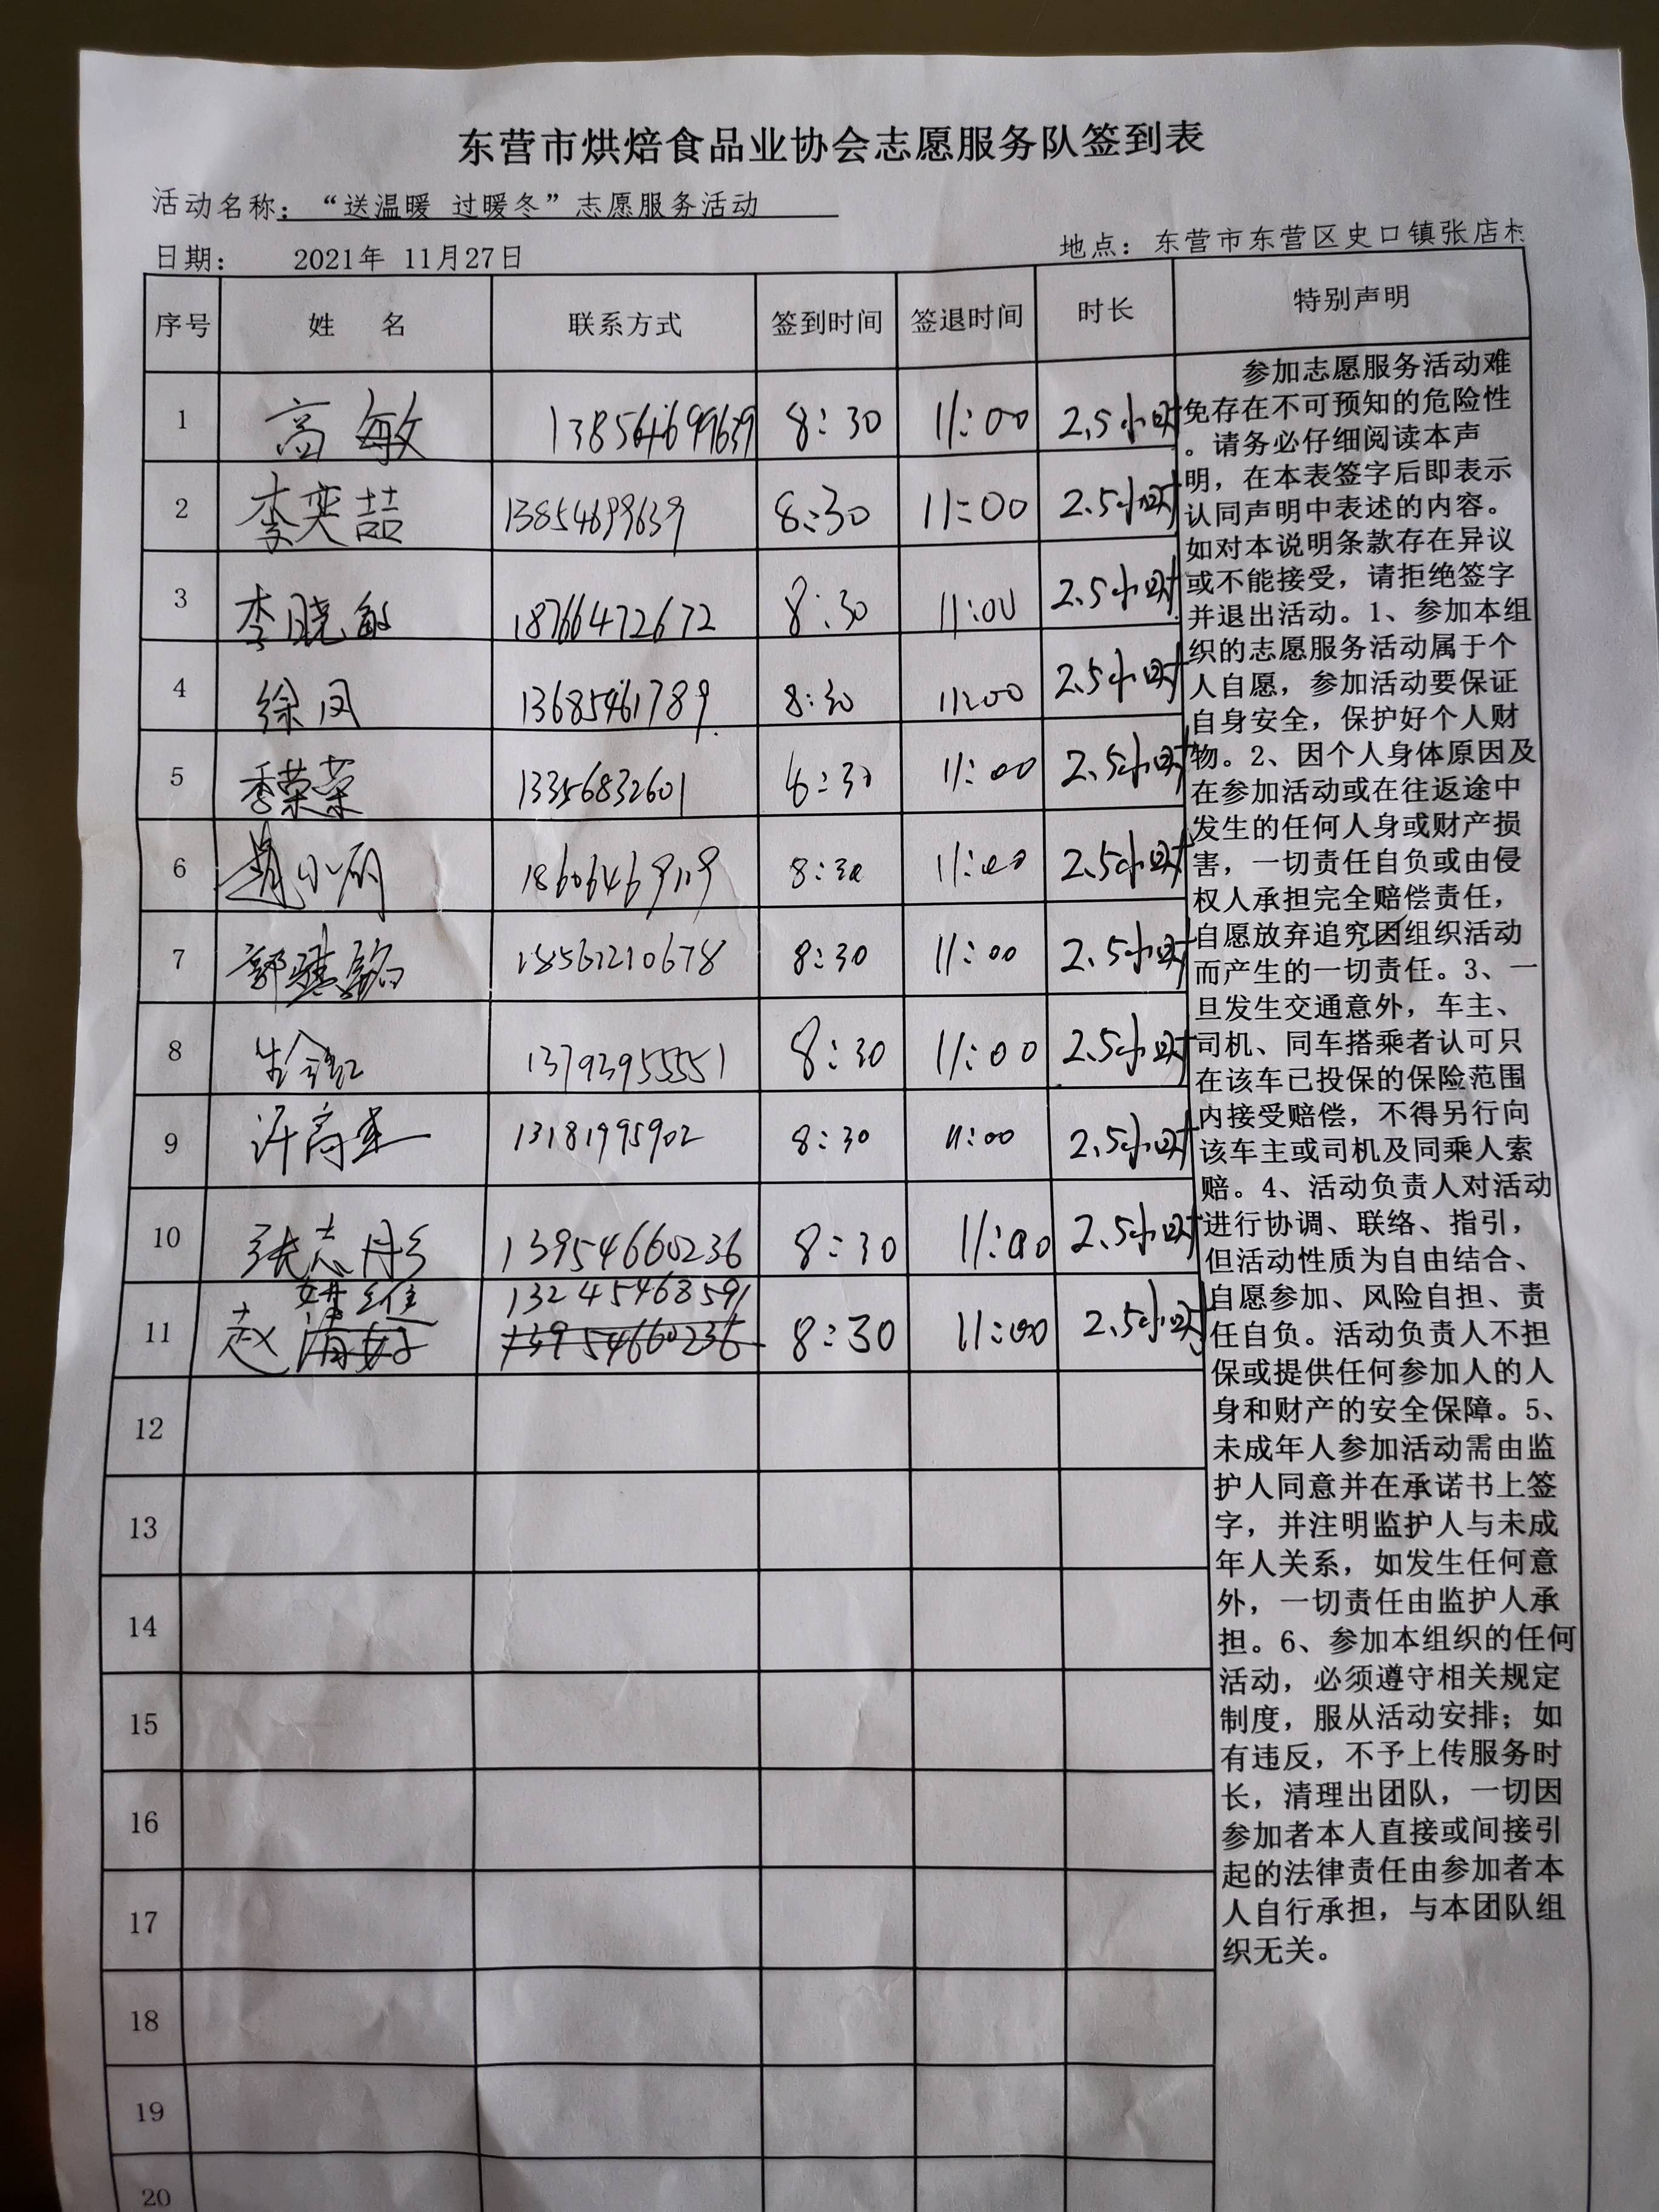 东营市烘焙食品业协会志愿服务队签到表
活动名称：“送温暖 过暖冬”志愿服务活动
日期： 2021年 11月27日
地点：东营市东营区史口镇张店村
序号 姓 名 联系方式 签到时间 签退时间 时长 特别声明
1 高敏 8:30 11:00 2.5小时
2 李奕喆 13854699639 8:30 11:00 2.5小时
3 李晓敏 18766472672 8:30 11:00 2.5小时
4 徐凤 13685461789 8:30 11:00 2.5小时
5 季荣荣 13356832601 8:30 11:00 2.5小时
6 赵小丽 8:30 11:00 2.5小时
7 18562210678 8:30 11:00 2.5小时
8 13793955551 8:30 11:00 2.5小时
9 许高 13181995902 8:30 11:00 2.5小时
10 张志丹 13954660236 8:30 11:00 2.5小时
11 赵 13245468591 13954660236 8:30 11:00 2.5小时
12
13
14
15
16
17
18
19
20
参加志愿服务活动难
免存在不可预知的危险性
。请务必仔细阅读本声
明，在本表签字后即表示
认同声明中表述的内容。
如对本说明条款存在异议
或不能接受，请拒绝签字
并退出活动。1、参加本组
织的志愿服务活动属于个
人自愿，参加活动要保证
自身安全，保护好个人财
物。2、因个人身体原因及
在参加活动或在往返途中
发生的任何人身或财产损
害，一切责任自负或由侵
权人承担完全赔偿责任，
自愿放弃追究因组织活动
而产生的一切责任。3、一
旦发生交通意外，车主、
司机、同车搭乘者认可只
在该车已投保的保险范围
内接受赔偿，不得另行向
该车主或司机及同乘人索
赔。4、活动负责人对活动
进行协调、联络、指引，
但活动性质为自由结合、
自愿参加、风险自担、责
任自负。活动负责人不担
保或提供任何参加人的人
身和财产的安全保障。5、
未成年人参加活动需由监
护人同意并在承诺书上签
字，并注明监护人与未成
年人关系，如发生任何意
外，一切责任由监护人承
担。6、参加本组织的任何
活动，必须遵守相关规定
制度，服从活动安排；如
有违反，不予上传服务时
长，清理出团队，一切因
参加者本人直接或间接引
起的法律责任由参加者本
人自行承担，与本团队组
织无关。